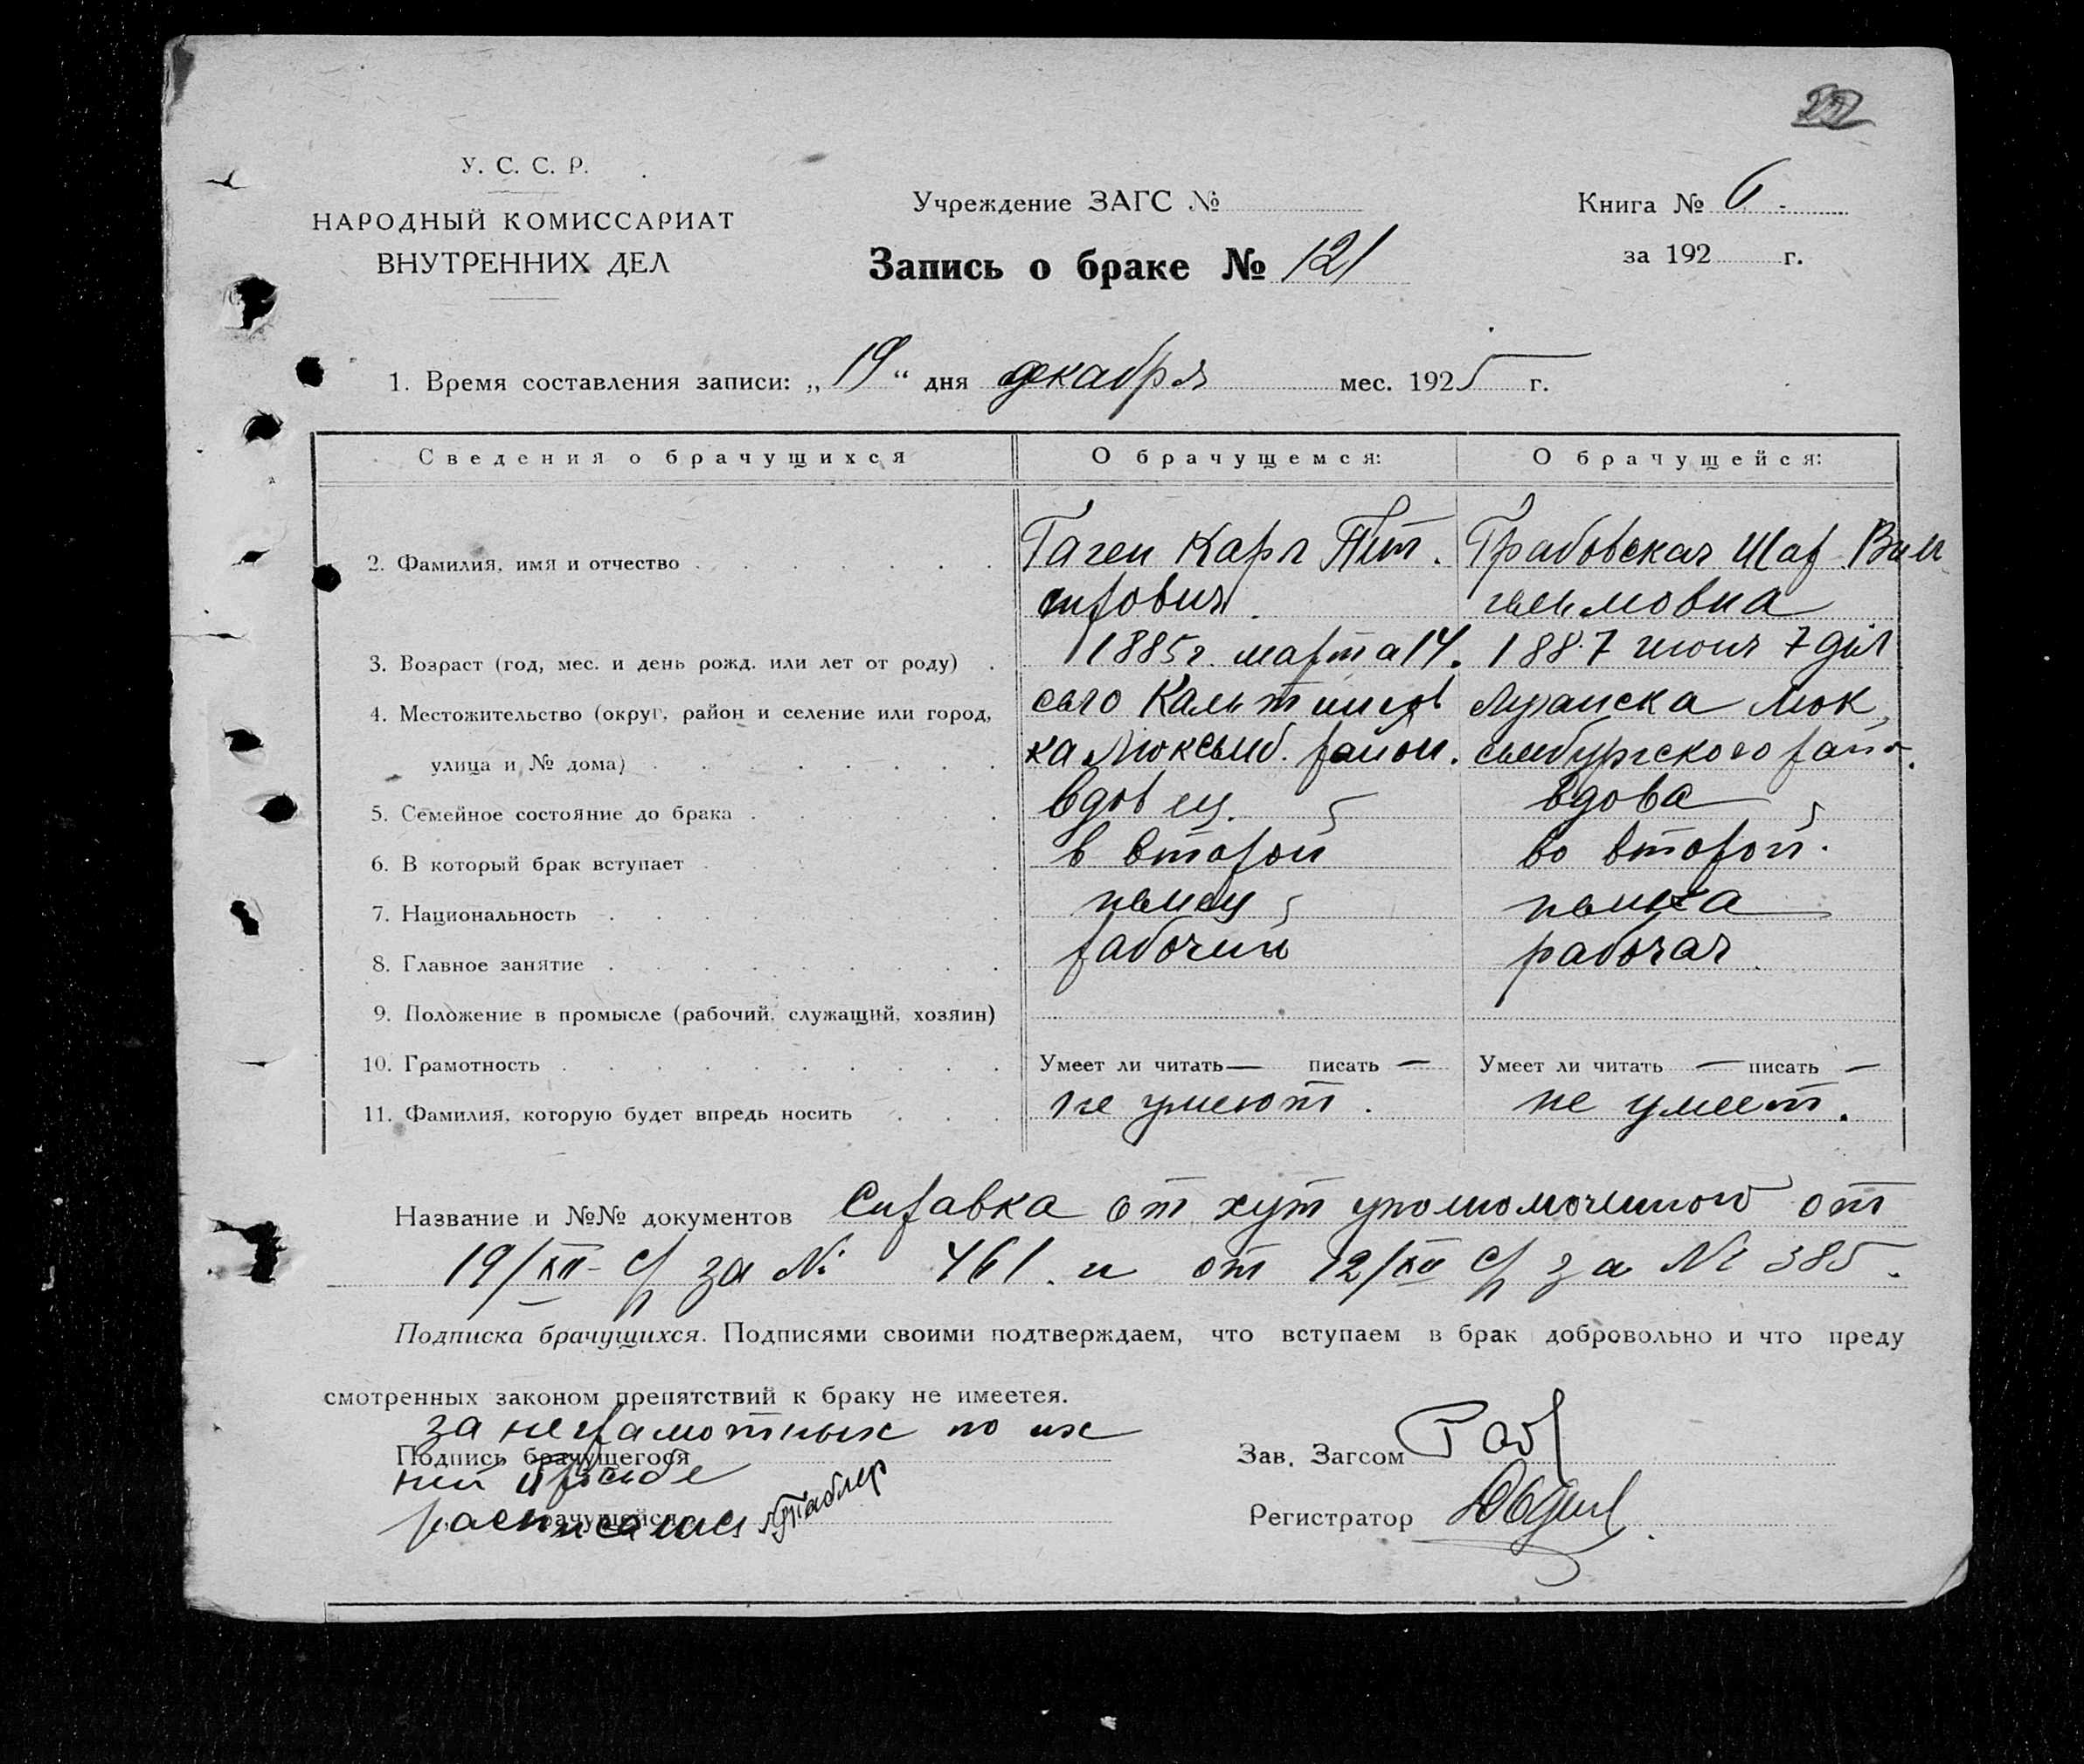 У. С. С. Р.
НАРОДНЫЙ КОМИССАРИАТ
ВНУТРЕННИХ ДЕЛ
Учреждение ЗАГС №
Запись о браке № 121
Книга № 6
за 192 г.
1. Время составления записи: „19“ дня декабря мес. 1925 г.
Сведения о брачущихся
О брачущемся:
О брачущейся:
2. Фамилия, имя и отчество
Гаген Карл
Грабовская Шар. Виль
гельмовна
3. Возраст (год, мес. и день рожд. или лет от роду)
1885 г. марта 14.
1887 июня 7 дня
4. Местожительство (округ, район и селение или город,
улица и № дома)
село
ка Люксемб. район.
Луганска Люк
сембургского райо.
5. Семейное состояние до брака
вдовец.
вдова
6. В который брак вступает
в второй
во второй.
7. Национальность
немец
немка
8. Главное занятие
рабочий
рабочая
9. Положение в промысле (рабочий, служащий, хозяин)
10. Грамотность
Умеет ли читать — писать —
Умеет ли читать — писать —
11. Фамилия, которую будет впредь носить
не умеют.
не умеет.
Название и №№ документов Справка от хут уполномоченного от
19/XII - с/г за № 461. и от 12/XII с/г за № 385.
Подписка брачущихся. Подписями своими подтверждаем, что вступаем в брак добровольно и что преду
смотренных законом препятствий к браку не имеетея.
за неграмотных по их
Подпись брачущегося
ний прозьбе
брачущейся
расписался
Зав. Загсом
Регистратор